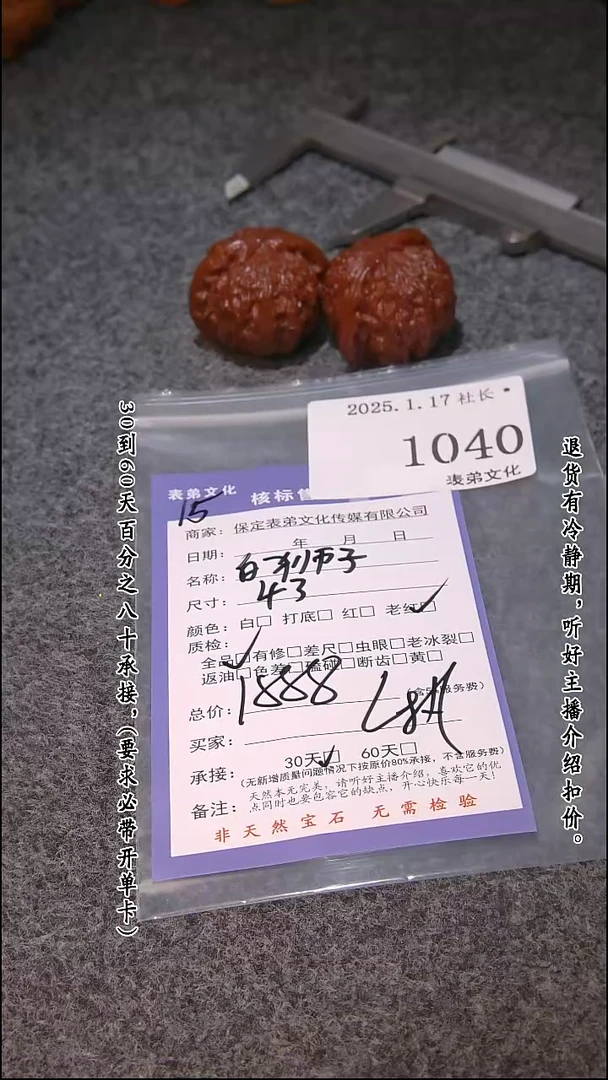 30到60天百分之八十承接,(要求必带开单卡)
退货有冷静期,听好主播介绍扣价。
2025.1.17 社长
1040
表弟文化
表弟文化 核标
15
商家: 保定表弟文化传媒有限公司
日期: 年 月 日
名称: 白狮子
尺寸: 43
颜色: 白□ 打底□ 红□ 老红□
质检:
全品□有修□差尺□虫眼□老冰裂□
返油□色差□磕碰□断齿□黄□
总价: 1888 服务费)
买家:
承接: 30天□ 60天□
(无新增质量问题情况下按原价80%承接,不含服务费)
备注: 天然本无完美,请听好主播介绍,喜欢它的优
点同时也要包容它的缺点,开心快乐每一天!
非天然宝石 无需检验